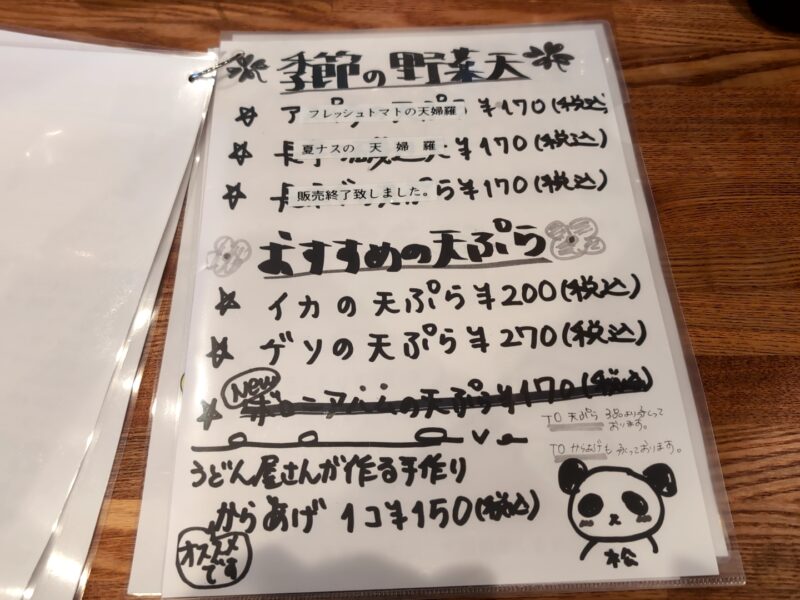 季節の野菜天
フレッシュトマトの天婦羅 ¥170(税込)
夏ナスの 天 婦 羅 ¥170(税込)
販売終了致しました。 ら ¥170(税込)
おすすめの天ぷら
イカの天ぷら ¥200(税込)
ゲソの天ぷら ¥270(税込)
New
の天ぷら ¥170(税込)
TO 天ぷら 3品より承って
おります。
TO からあげも承っております。
うどん屋さんが作る手作り
からあげ 1コ¥150(税込)
オススメ
です